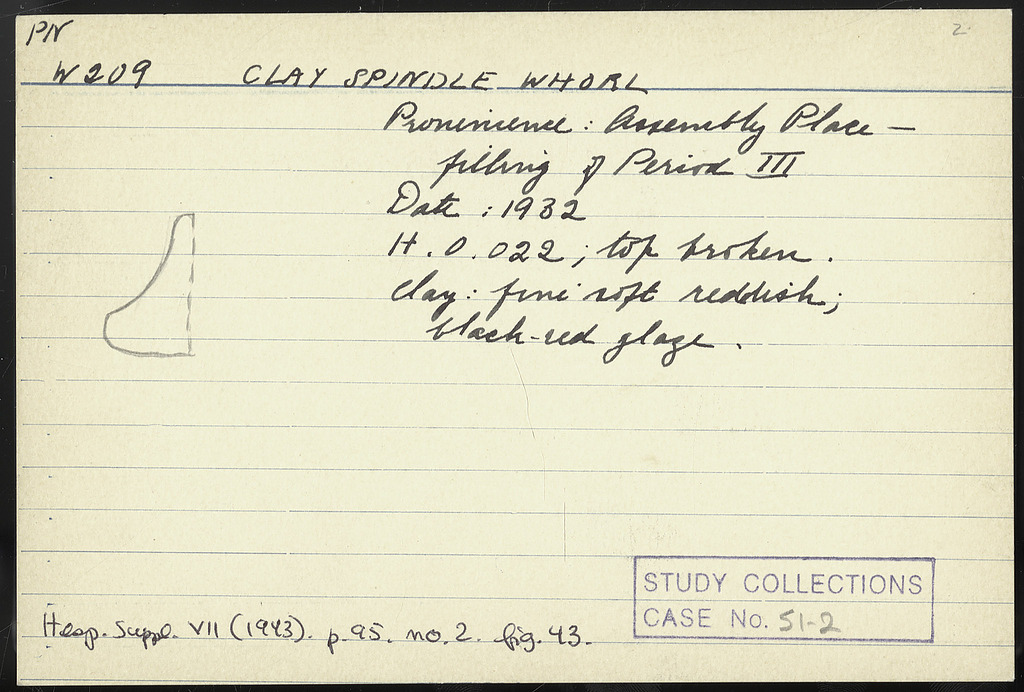 PN
2
W 209 CLAY SPINDLE WHORL
Provenience: Assembly Place —
filling of Period III
Date : 1932
H. 0.022 ; top broken.
Clay: fine soft reddish;
black-red glaze.
STUDY COLLECTIONS
CASE No. 51-2
Hesp. Suppl. VII (1943). p. 95. no. 2. fig. 43.